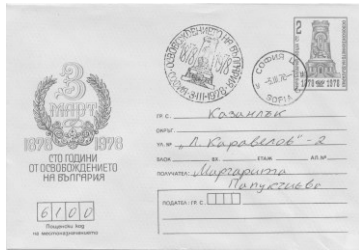 3
МАРТ
1878 1978
СТО ГОДИНИ
ОТ ОСВОБОЖДЕНИЕТО
НА БЪЛГАРИЯ
6100
Пощенски код
на местоназначението
3·III·1978
1878 1978
СОФИЯ Ц
SOFIA
2
1878 1978
ГР. С. Казанлък
ОКРЪГ
УЛ. № "Л. Каравелов" - 2
БЛОК ВХ. ЕТАЖ АП. №
ПОЛУЧАТЕЛ: Маргарита
Папукчиева
ПОДАТЕЛ: ГР. С.